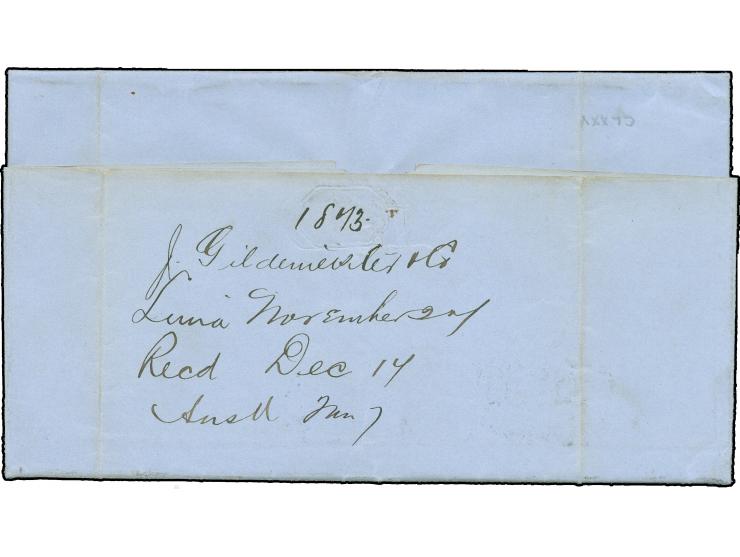 1873.
J. Gildemeister & Co
Lima November 27
Recd Dec 14
Ansd Jan 7